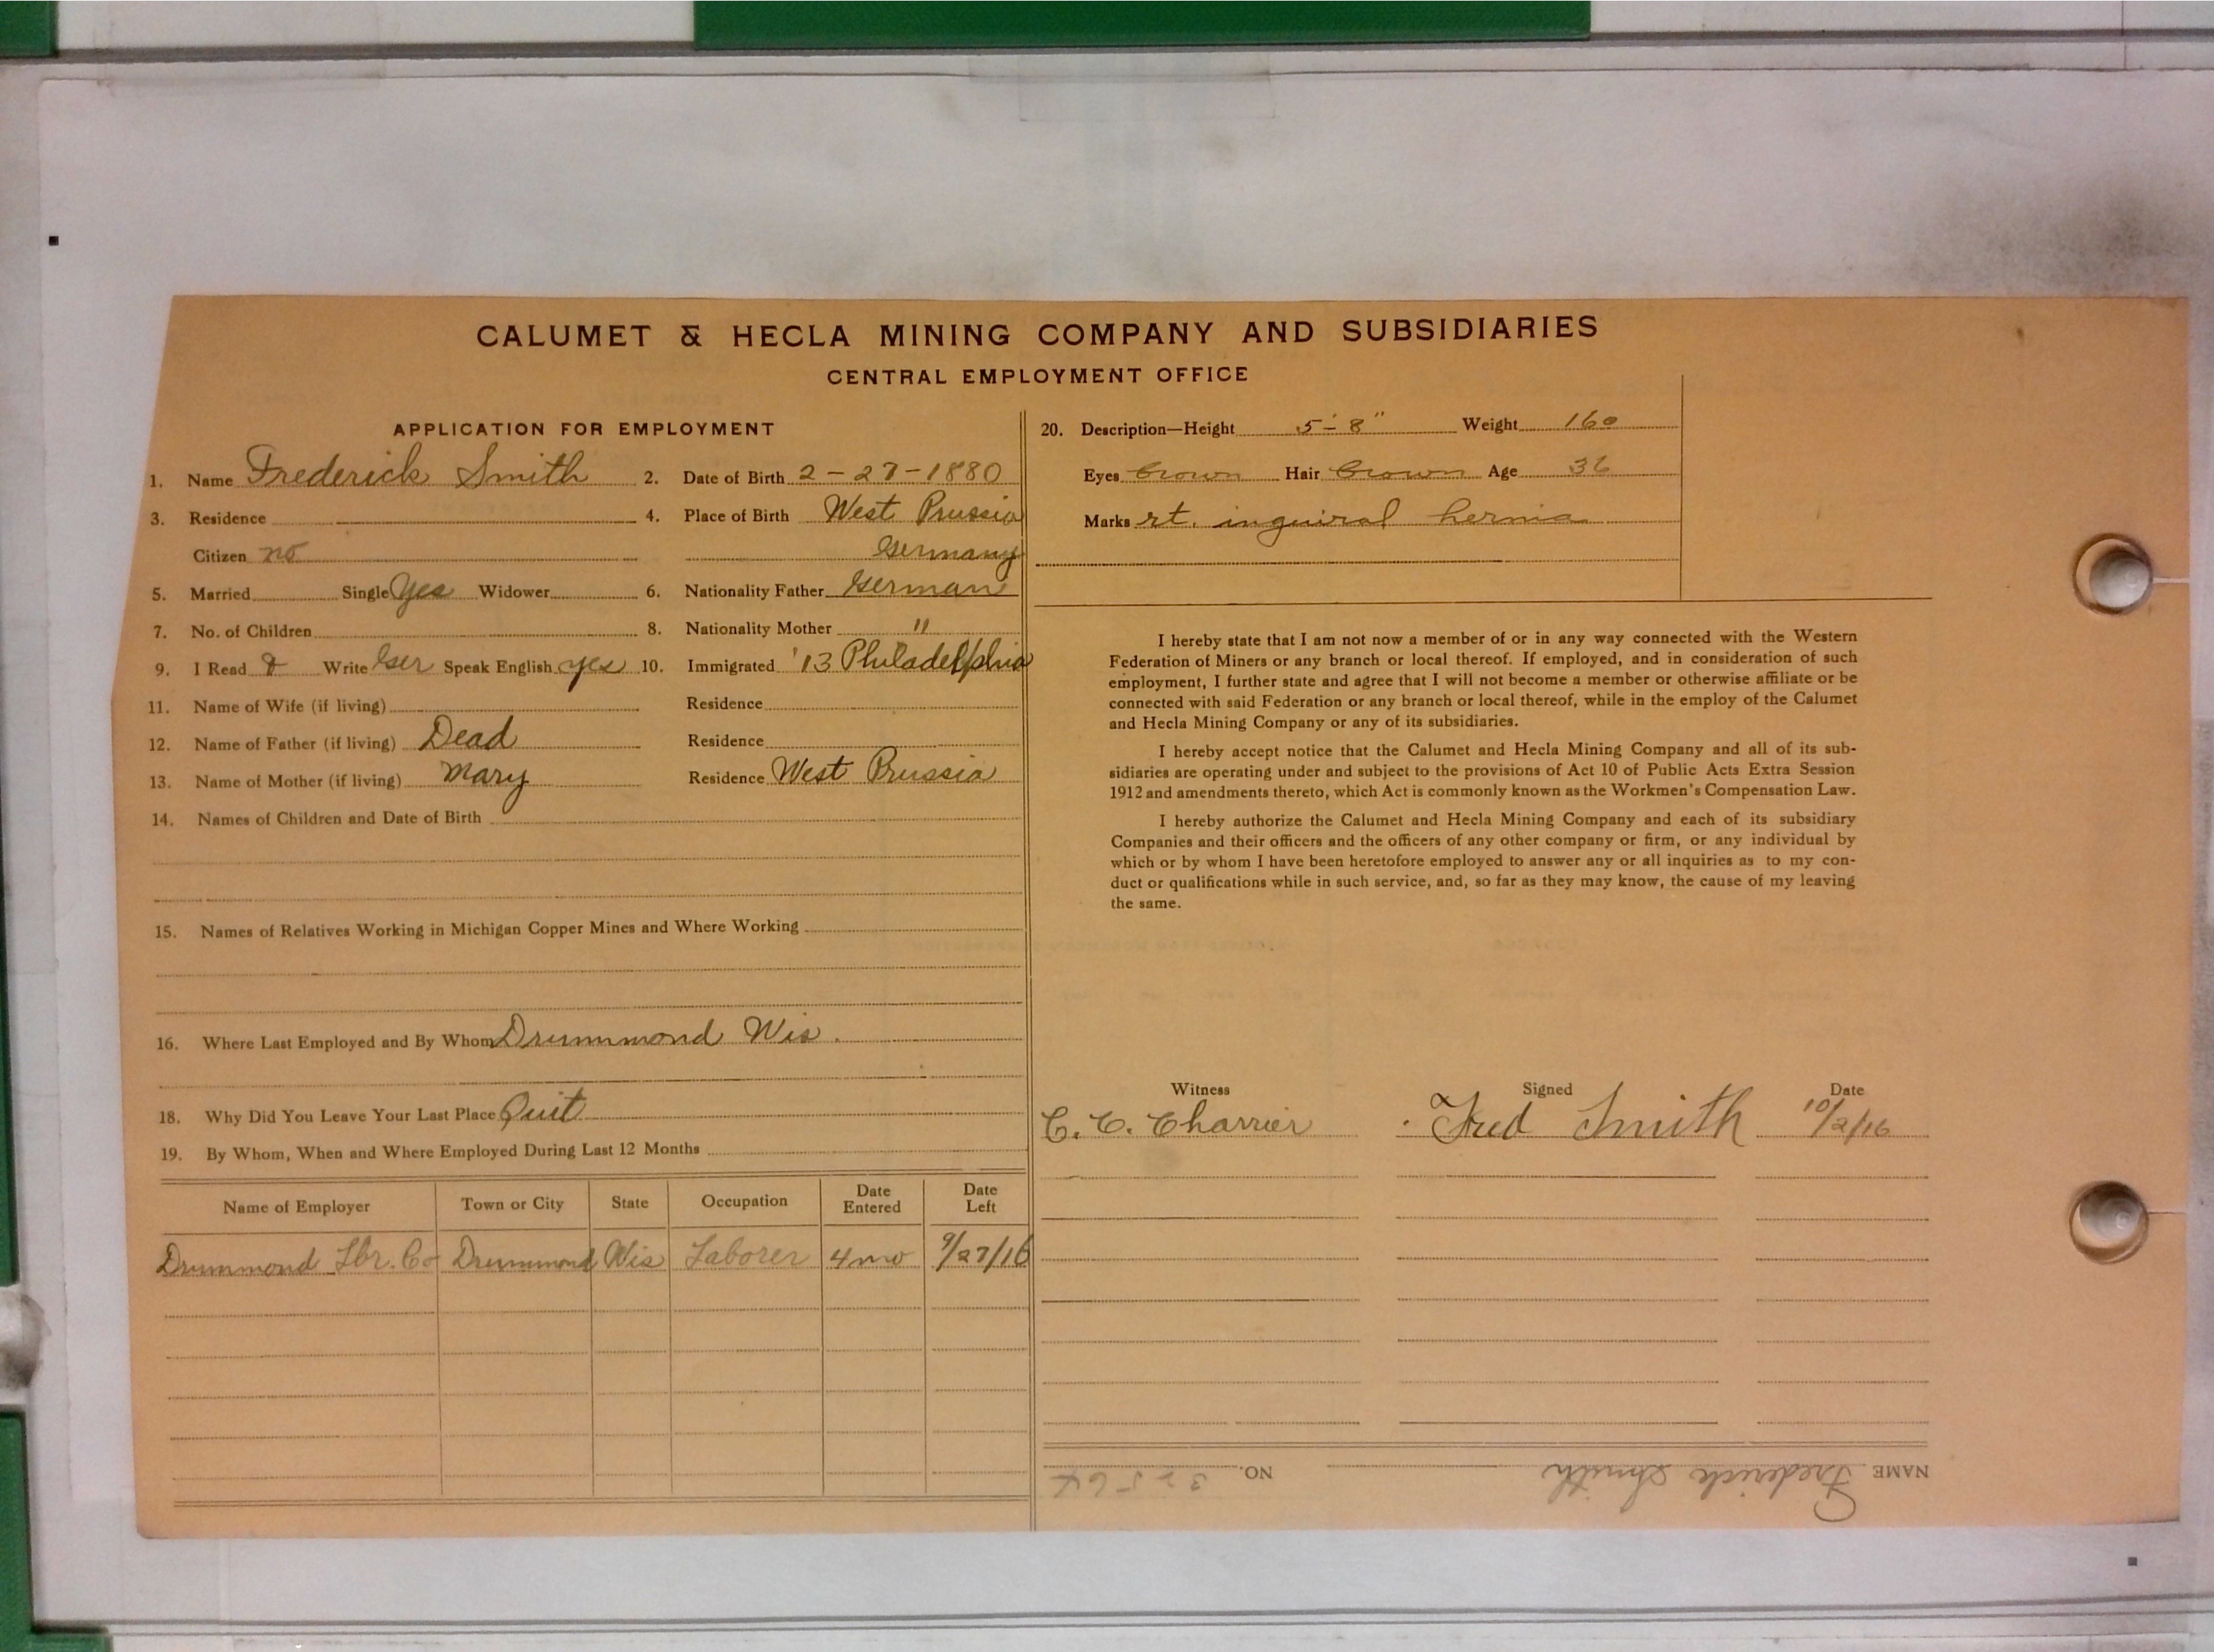 CALUMET & HECLA MINING COMPANY AND SUBSIDIARIES
CENTRAL EMPLOYMENT OFFICE
APPLICATION FOR EMPLOYMENT
1. Name Frederick Smith 2. Date of Birth 2-27-1880
3. Residence 4. Place of Birth West Prussia
Citizen no Germany
5. Married Single Yes Widower 6. Nationality Father German
7. No. of Children 8. Nationality Mother "
9. I Read & Write Ger Speak English yes 10. Immigrated '13 Philadelphia
11. Name of Wife (if living) Residence
12. Name of Father (if living) Dead Residence
13. Name of Mother (if living) Mary Residence West Prussia
14. Names of Children and Date of Birth
15. Names of Relatives Working in Michigan Copper Mines and Where Working
16. Where Last Employed and By Whom Drummond Wis.
18. Why Did You Leave Your Last Place Quit
19. By Whom, When and Where Employed During Last 12 Months
Name of Employer Town or City State Occupation Date Entered Date Left
Drummond Lbr. Co Drummond Wis Laborer 4 mo 9/27/16
20. Description—Height 5'-8" Weight 160
Eyes brown Hair Brown Age 36
Marks rt. inguiral hernia
I hereby state that I am not now a member of or in any way connected with the Western
Federation of Miners or any branch or local thereof. If employed, and in consideration of such
employment, I further state and agree that I will not become a member or otherwise affiliate or be
connected with said Federation or any branch or local thereof, while in the employ of the Calumet
and Hecla Mining Company or any of its subsidiaries.
I hereby accept notice that the Calumet and Hecla Mining Company and all of its sub-
sidiaries are operating under and subject to the provisions of Act 10 of Public Acts Extra Session
1912 and amendments thereto, which Act is commonly known as the Workmen's Compensation Law.
I hereby authorize the Calumet and Hecla Mining Company and each of its subsidiary
Companies and their officers and the officers of any other company or firm, or any individual by
which or by whom I have been heretofore employed to answer any or all inquiries as to my con-
duct or qualifications while in such service, and, so far as they may know, the cause of my leaving
the same.
Witness Signed Date
C. C. Charrier Fred Smith 10/2/16
NAME Frederick Smith NO. 32564